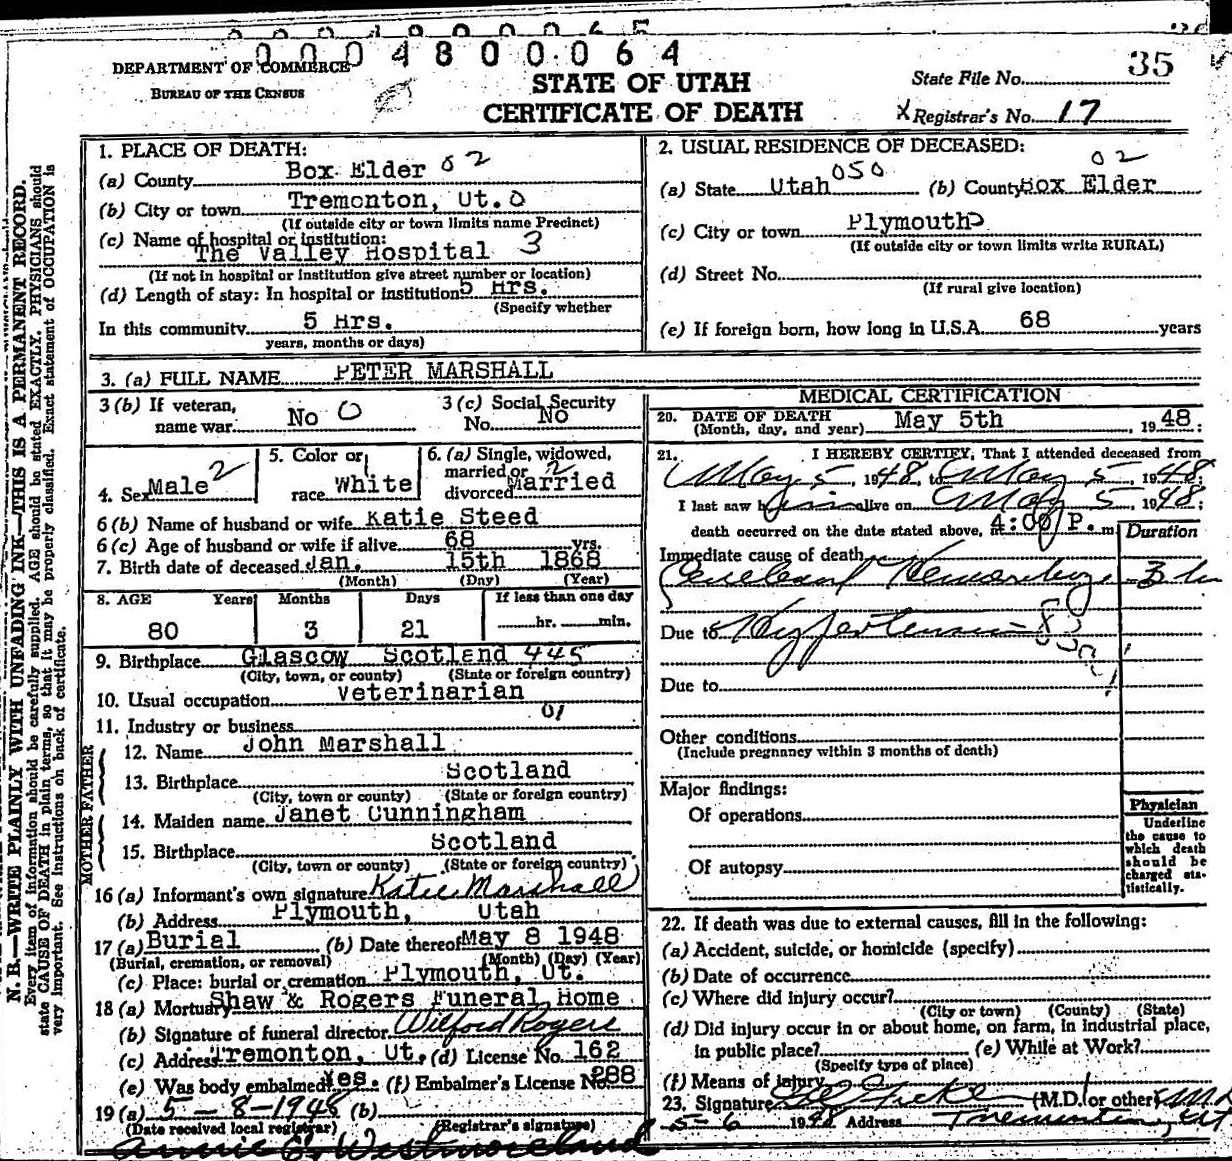 0004800064
35
DEPARTMENT OF COMMERCE
BUREAU OF THE CENSUS
STATE OF UTAH
CERTIFICATE OF DEATH
State File No.
X Registrar's No. 17
N. B.—WRITE PLAINLY WITH UNFADING INK—THIS IS A PERMANENT RECORD.
Every item of information should be carefully supplied. AGE should be stated EXACTLY. PHYSICIANS should
state CAUSE OF DEATH in plain terms, so that it may be properly classified. Exact statement of OCCUPATION is
very important. See instructions on back of certificate.
1. PLACE OF DEATH:
(a) County Box Elder 02
(b) City or town Tremonton, Ut. 0
(If outside city or town limits name Precinct)
(c) Name of hospital or institution:
The Valley Hospital 3
(If not in hospital or institution give street number or location)
(d) Length of stay: In hospital or institution 5 Hrs.
(Specify whether
In this community 5 Hrs.
years, months or days)
2. USUAL RESIDENCE OF DECEASED:
02
(a) State Utah 050 (b) County Box Elder
(c) City or town Plymouth
(If outside city or town limits write RURAL)
(d) Street No.
(If rural give location)
(e) If foreign born, how long in U.S.A. 68 years
3. (a) FULL NAME PETER MARSHALL
3 (b) If veteran, name war No 0
3 (c) Social Security No. No
4. Sex Male 2
5. Color or race White
6. (a) Single, widowed, married or divorced Married 2
6 (b) Name of husband or wife Katie Steed
6 (c) Age of husband or wife if alive 68 yrs.
7. Birth date of deceased Jan. 15th 1868
(Month) (Day) (Year)
8. AGE Years Months Days If less than one day
80 3 21 hr. min.
9. Birthplace Glascow Scotland 445
(City, town, or county) (State or foreign country)
10. Usual occupation Veterinarian
01
11. Industry or business
FATHER
12. Name John Marshall
13. Birthplace Scotland
(City, town or county) (State or foreign country)
MOTHER
14. Maiden name Janet Cunningham
15. Birthplace Scotland
(City, town or county) (State or foreign country)
16 (a) Informant's own signature Katie Marshall
(b) Address Plymouth, Utah
17 (a) Burial (b) Date thereof May 8 1948
(Burial, cremation, or removal) (Month) (Day) (Year)
(c) Place: burial or cremation Plymouth, Ut.
18 (a) Mortuary Shaw & Rogers Funeral Home
(b) Signature of funeral director Wilford Rogers
(c) Address Tremonton, Ut. (d) License No. 162
(e) Was body embalmed Yes. (f) Embalmer's License No. 288
19 (a) 5-8-1948 (b)
(Date received local registrar) (Registrar's signature)
Annie C. Westmoreland
MEDICAL CERTIFICATION
20. DATE OF DEATH
(Month, day, and year) May 5th, 1948:
21. I HEREBY CERTIFY, That I attended deceased from
May 5, 1948, to May 5, 1948:
I last saw him alive on May 5 1948;
death occurred on the date stated above, at 4:00 P. m.
Duration
Immediate cause of death
Cerebral Hemorrhage 3 hr
Due to Hypertension
Due to
Other conditions
(Include pregnancy within 3 months of death)
Major findings:
Of operations
Of autopsy
Physician
Underline
the cause to
which death
should be
charged sta-
tistically.
22. If death was due to external causes, fill in the following:
(a) Accident, suicide, or homicide (specify)
(b) Date of occurrence
(c) Where did injury occur?
(City or town) (County) (State)
(d) Did injury occur in or about home, on farm, in industrial place,
in public place? (e) While at Work?
(Specify type of place)
(f) Means of injury
23. Signature (M.D. or other) M.D.
5-6 1948 Address Tremonton, Ut